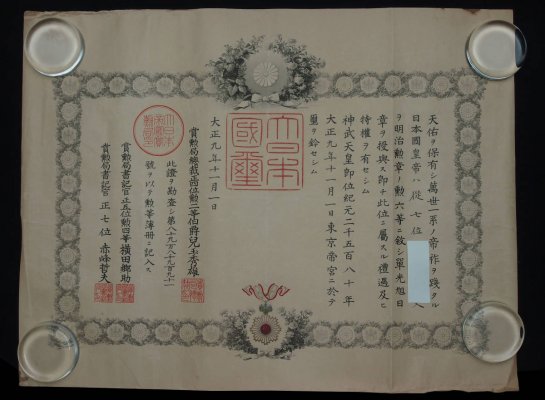 天佑ヲ保有シ萬世一系ノ帝祚ヲ踐タル
日本國皇帝ハ從七位
ヲ明治勲章ノ勲六等ニ敘シ單光旭日
章ヲ授與ス即チ此位ニ屬スル禮遇及ヒ
特權ヲ有セシム
神武天皇即位紀元二千五百八十年
大正九年十一月一日東京帝宮ニ於テ
璽ヲ鈐セシム
大日本國璽
大正九年十一月一日
賞勲局總裁 勲二等伯爵兒玉秀雄
此證ヲ勘査シ第八十九万 九百九十一
號ヲ以テ勲等簿冊ニ記入ス
賞勲局書記官正五位勲四等横田郷助
賞勲局書記官 正七位 赤峰哲夫